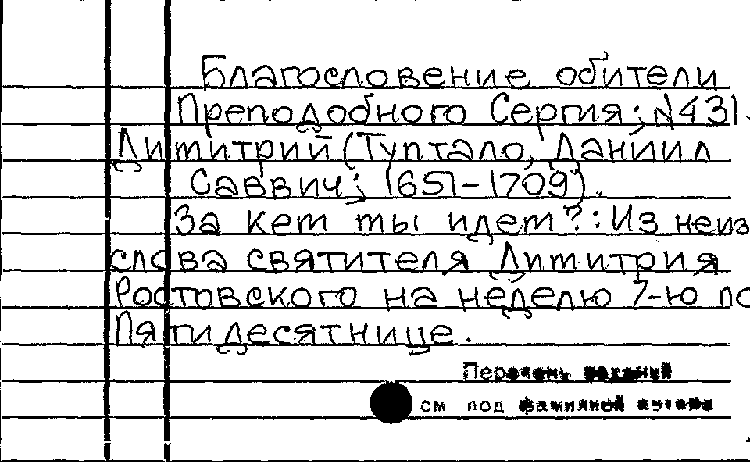 Благословение обители
Преподобного Сергия; №431.
Димитрий (Туптало, Даниил
Саввич; 1651-1709).
За кем ты идет?: Из неиз
слова святителя Димитрия
Ростовского на неделю 7-ю по
Пятидесятнице.
Перечень изданий
см под фамилией автора